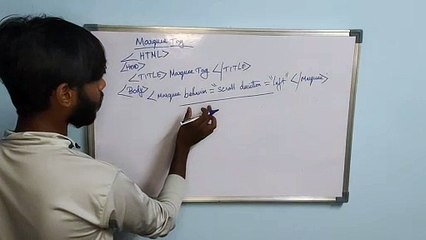 Marquee Tag
< HTML>
<HEAD>
<TITLE> Marquee Tag </TITLE>
<Body> <Marquee behavior = "scroll direction = "left" </Marquee>